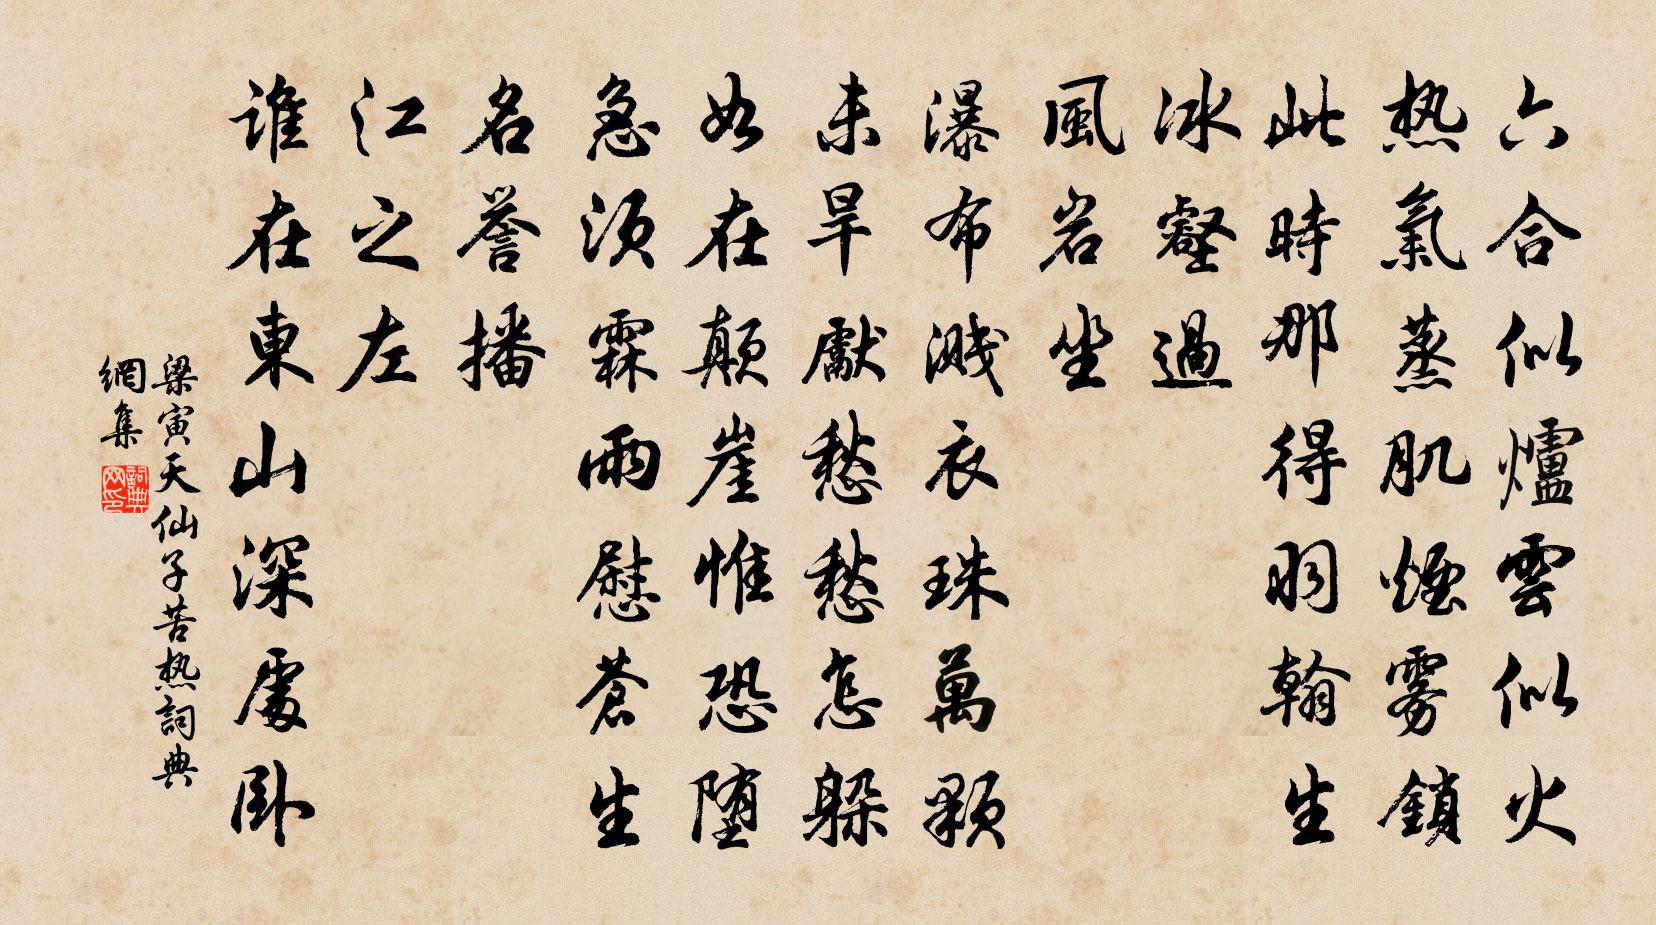 六合似爐雲似火
热氣蒸肌煙雾鎖
此時那得羽翰生
冰壑過
風岩坐
瀑布溅衣珠萬顆
未旱獻愁愁怎躲
如在顛崖惟恐堕
急須霖雨慰蒼生
名譽播
江之左
誰在東山深處卧
梁寅天仙子苦热詞典
網集
詞典网印